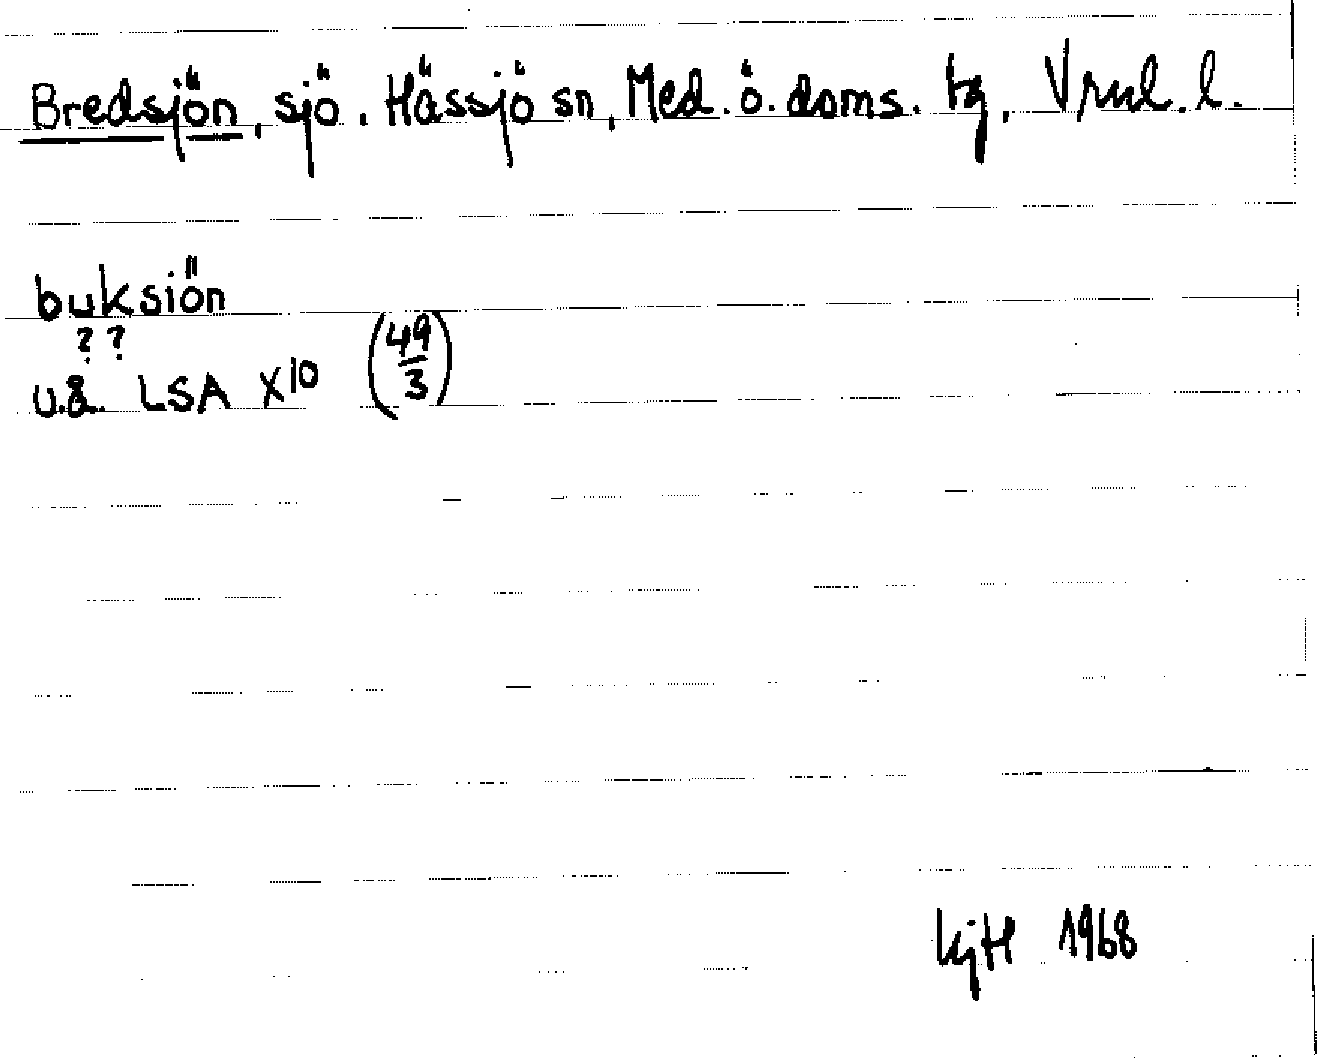 Bredsjön, sjö. Hässjö sn, Med. ö. doms. tg, Vrnl. l.
buksiön
? ?
u.å. LSA X10 (49/3)
1968